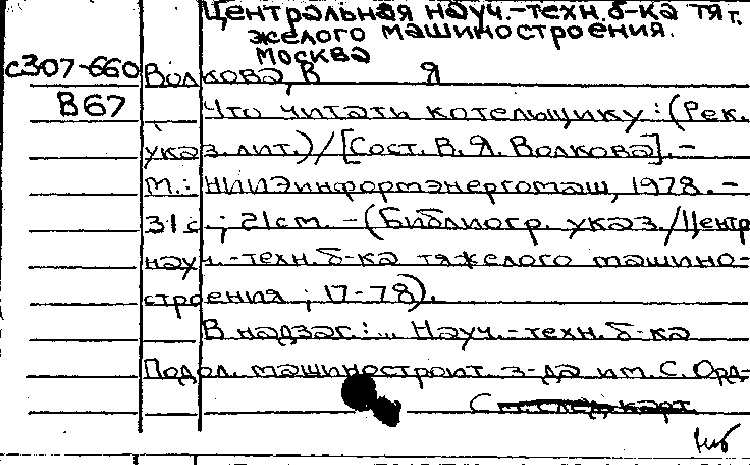 Центральная науч.-техн. б-ка тя г.
желого машиностроения.
Москва
с307-660 Волкова, В Я
В67 Что читать котельщику : (Рек.
указ. лит.) / [Сост. В. Я. Волкова]. -
М.: НИИЭинформэнергомаш, 1978. -
31 с. ; 21 см. - (Библиогр. указ. / Центр
науч.-техн. б-ка тяжелого машино-
строения ; 17-78).
В надзаг.: ... Науч.-техн. б-ка
Подол. машиностроит. з-да им. С. Орд-
См. след. карт.